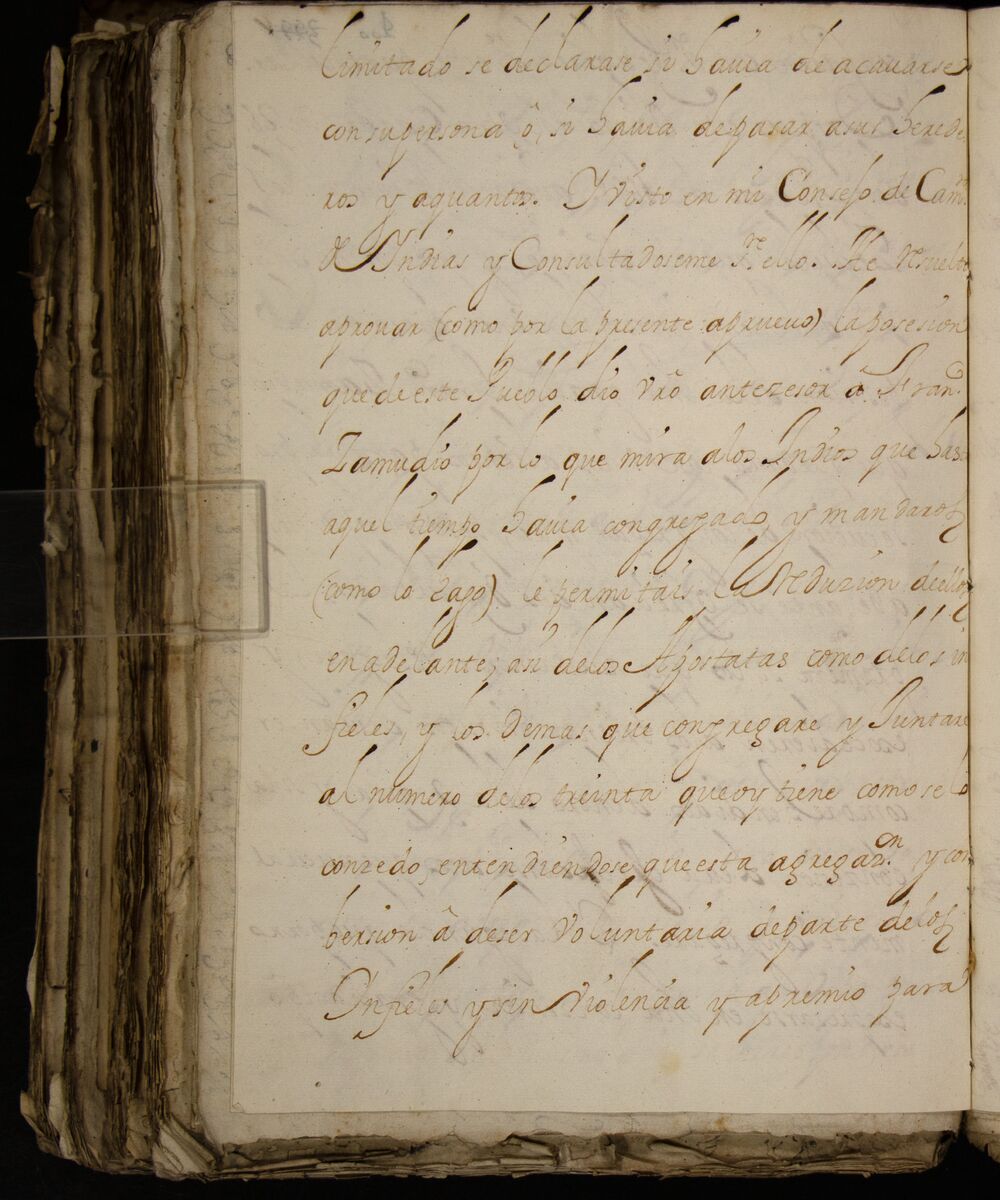 limitado se declarase si havia de acavarse
con su persona ô, si havia de pasar a sus herede
ros y a quantos. Y visto en mi Consejo de Cam.ra
de Indias y Consultadoseme s.re ello. He resuelto
aprovar (como por la presente apruevo) la posesion
que de este Pueblo dio vr̃o antezesor â Fran.co
Zamudio por lo que mira a los Indios que hasta
aquel tiempo havia congregado, y mandaros
(como lo hago) le permitais la reduzion de ellos
en adelante, asi de los Apostatas como de los in
fieles, y los demas que congregare y Juntare
al numero de los treinta que oy tiene como se lo
conzedo, entendiendose que esta agregaz.on y con
bersion â de ser voluntaria de parte de los
Infieles y sin violencia y apremio para